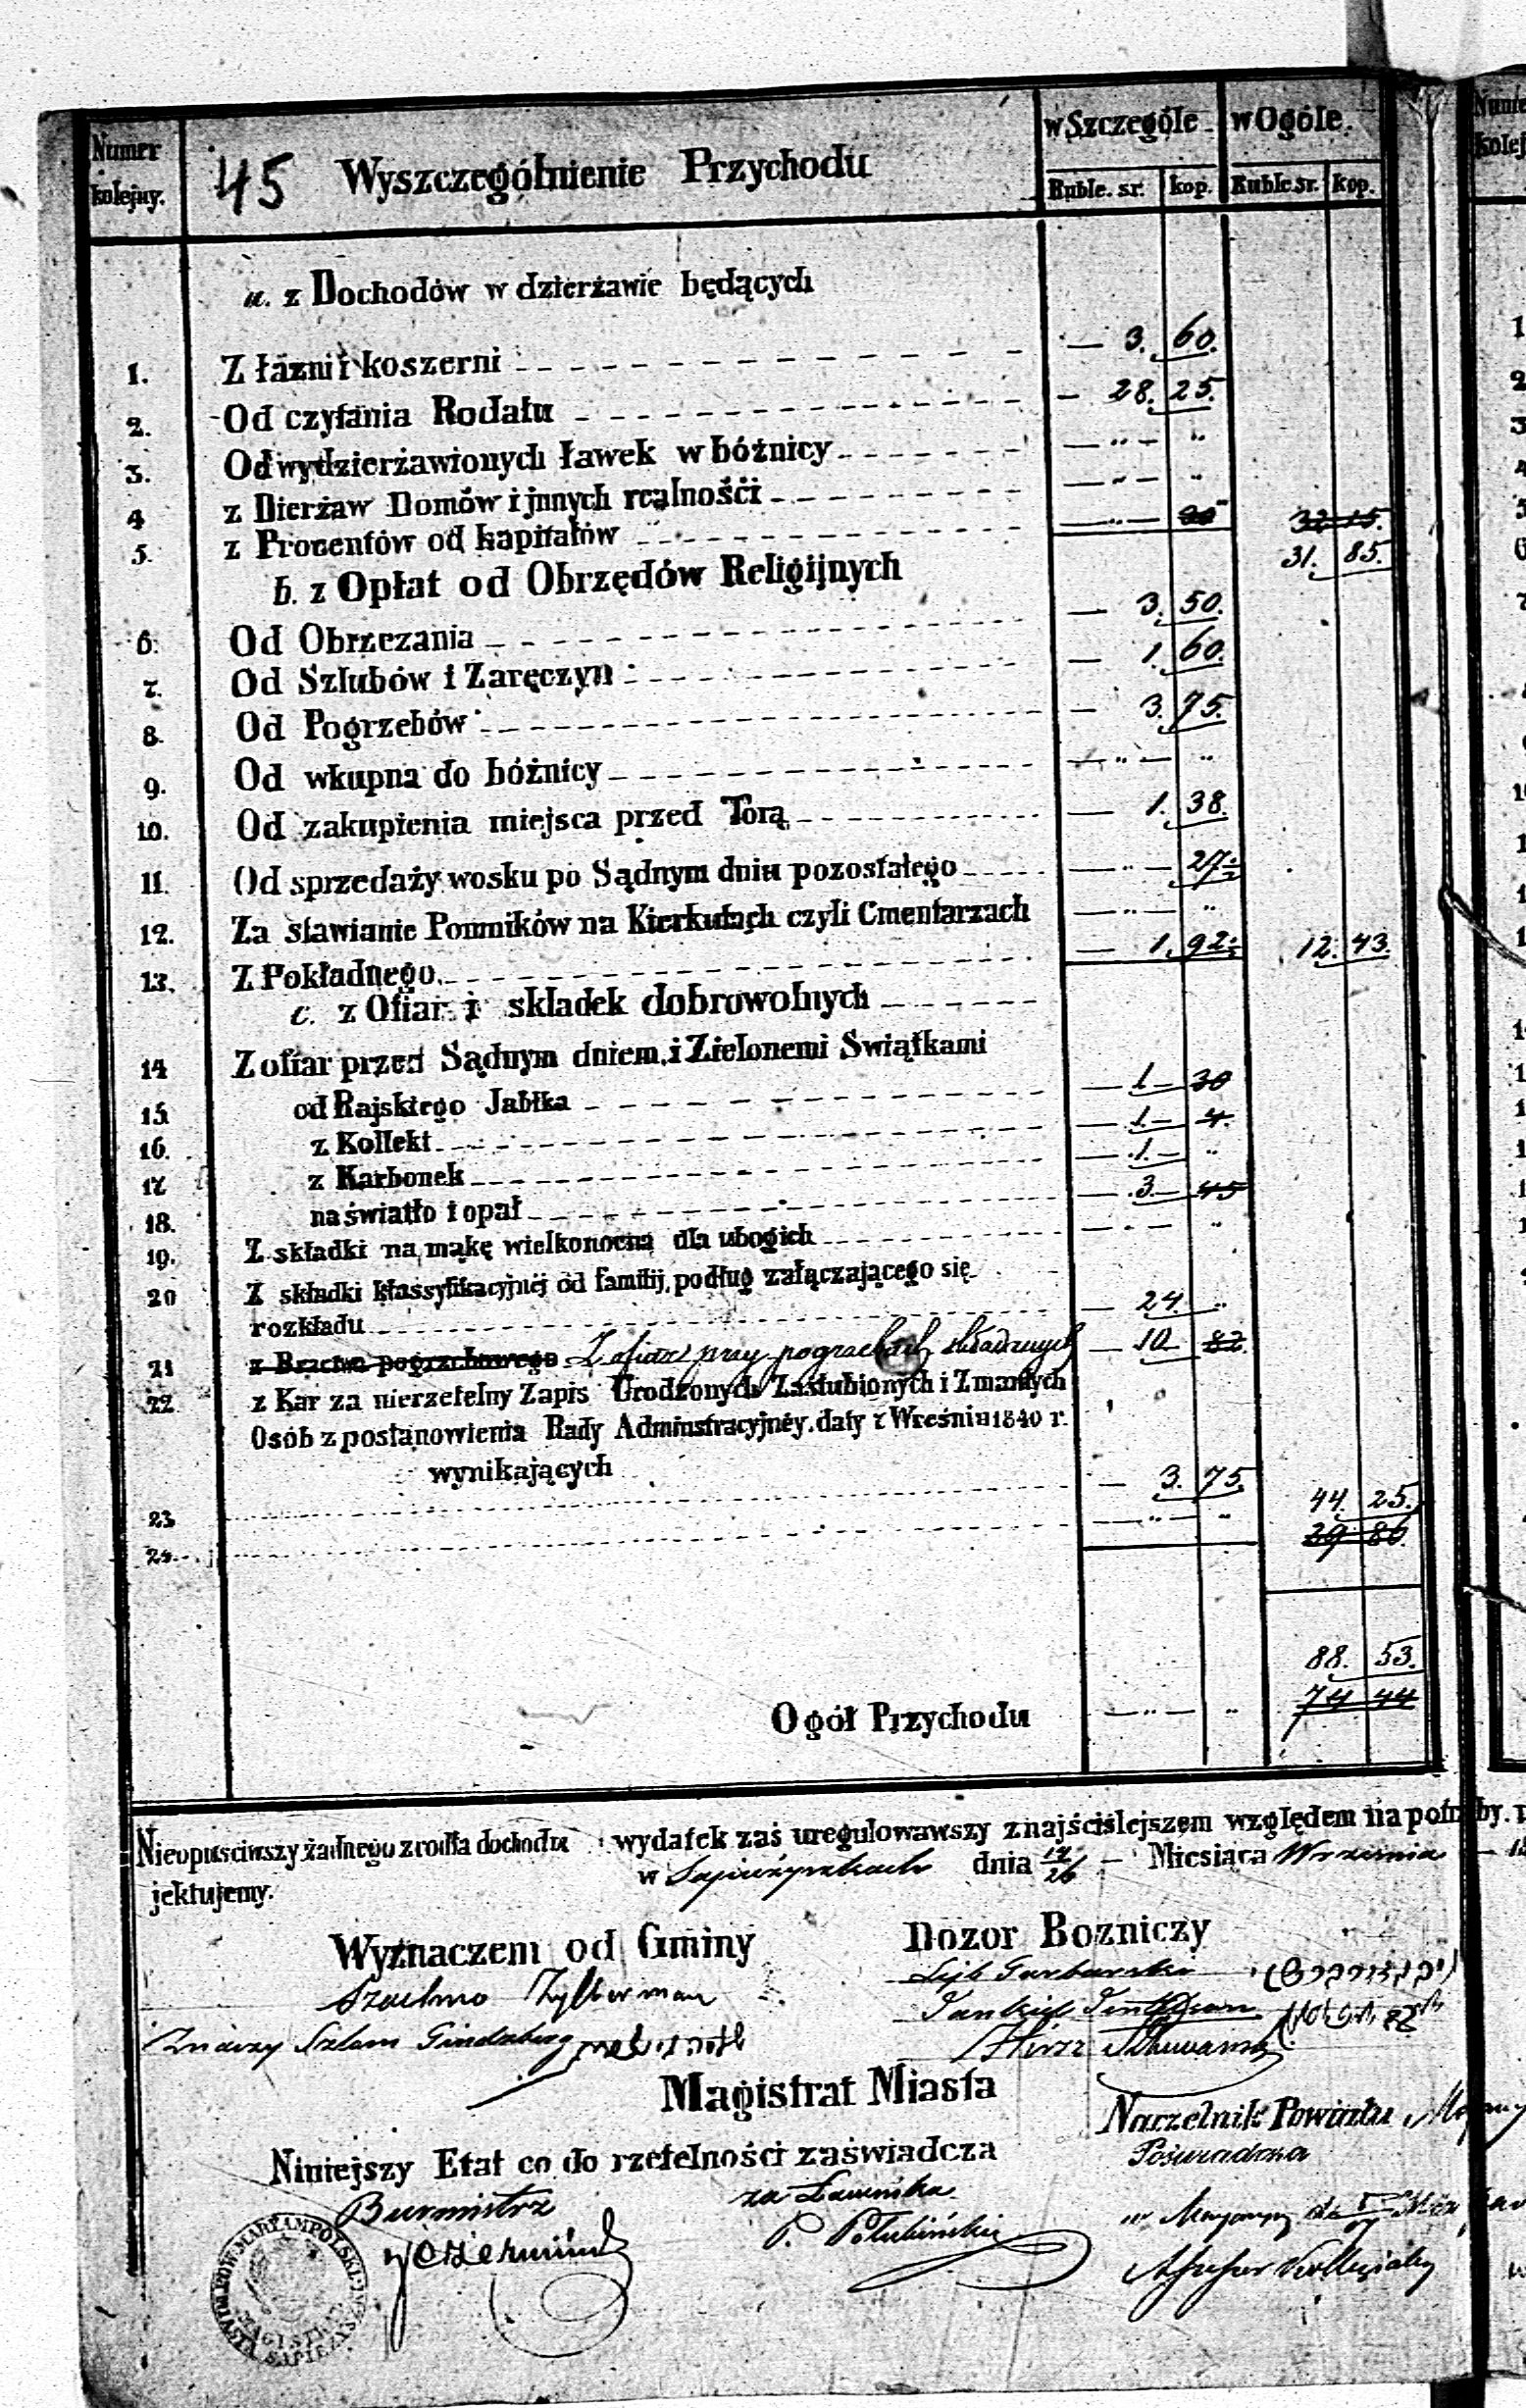 Numer kolejny.
45 Wyszczególnienie Przychodu
w Szczególe w Ogóle.
Ruble. sr. kop. Ruble sr. kop.
a. z Dochodów w dzierżawie będących
1. Z łaźni i koszerni — 3. 60.
2. Od czytania Rodału — 28. 25.
3. Od wydzierżawionych ławek w bóżnicy — " — "
4 z Dierżaw Domów i jnnych realnośći — " — "
5. z Procentów od kapitałów — " — 32 15.
31. 85.
b. z Opłat od Obrzędów Religijnych
6. Od Obrzezania — 3. 50.
7. Od Szlubów i Zaręczyn — 1. 60.
8. Od Pogrzebów — 3. 75.
9. Od wkupna do bóżnicy — " — "
10. Od zakupienia miejsca przed Torą — 1. 38.
11. Od sprzedaży wosku po Sądnym dniu pozostałego — " — 27.
12. Za stawianie Pomników na Kierkutach czyli Cmentarzach — " — "
13. Z Pokładnego — 1. 92. 12. 43.
c. z Ofiar i składek dobrowolnych
14 Z ofiar przed Sądnym dniem i Zielonemi Swiątkami — 1 — 30
15 od Rajskiego Jabłka — 1 — 4.
16. z Kollekt — 1 — "
17 z Karbonek — 3 — 45
18. na światło i opał — " — "
19. Z składki na mąkę wielkonocną dla ubogich
20 Z składki klassyfikacyjnéj od familij, podług załączającego się
rozkładu — 24. "
21 z Bractwa pogrzebowego Z ofiar przy pogrzebach składanych — 10 — 82.
22 z Kar za nierzetelny Zapis Urodzonych Zaślubionych i Zmarłych
Osób z postanowienia Rady Adminstracyjnéy. daty z Wrešnia 1840 r.
wynikających — 3. 75.
44. 25.
23 — " — "
29 86.
24
88. 53.
Ogół Przychodu — " — " 74 44
Nieopusciwszy żadnego zrodła dochodu wydatek zaś uregulowawszy z najściślejszem względem na potrzeby.
jektujemy. w dnia Miesiąca Września
Wyznaczem od Gminy Dozor Bozniczy
Szachno Zylberman
Lejb Garbarski
Jankiel
Szlom Gindzberg
Hirsz
Magistrat Miasta
Naczelnik Powiatu
Niniejszy Etat co do rzetelności zaświadcza
Poświadcza
Burmistrz za Ławnika
P.
Assessor Kollegialny